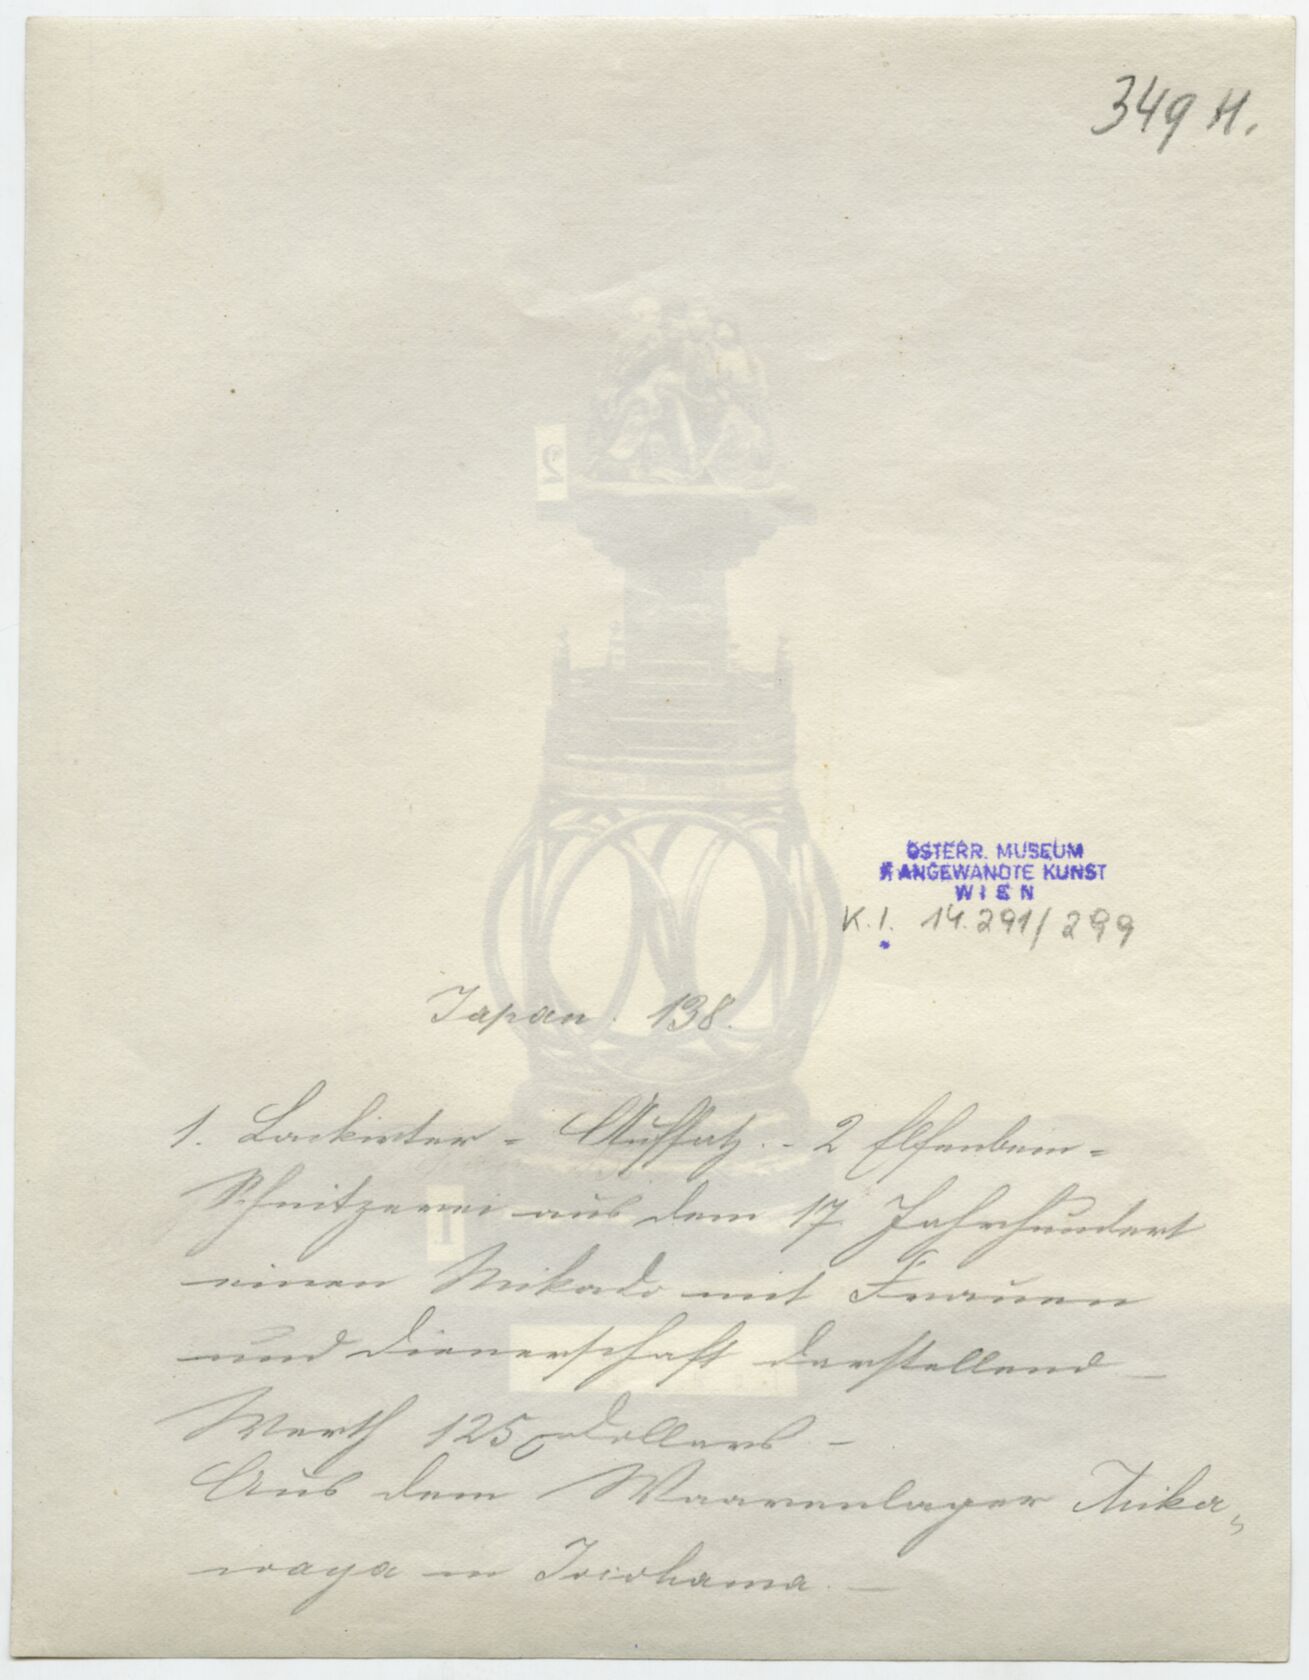 349 H.
ÖSTERR. MUSEUM
F ANGEWANDTE KUNST
WIEN
K.I. 14.291/299
Japan. 138.
1. Lackirter - Aufsatz. - 2 Elfenbein-
Schnitzerei aus dem 17 Jahrhundert
einen Mikado mit Frauen
und Dienerschaft darstellend —
Werth 125 Dollars —
Aus dem Waarenlager Mika,,
waya in Jocohama. —
2
1